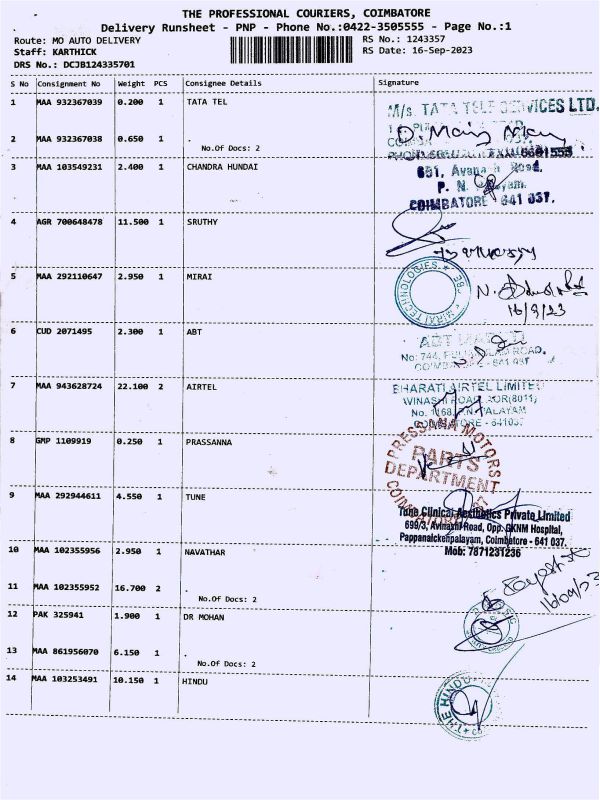 THE PROFESSIONAL COURIERS, COIMBATORE
Delivery Runsheet - PNP - Phone No.:0422-3505555 - Page No.:1
Route: MO AUTO DELIVERY
Staff: KARTHICK
DRS No.: DCJB124335701
RS No.: 1243357
RS Date: 16-Sep-2023
S No Consignment No Weight PCS Consignee Details Signature
1 MAA 932367039 0.200 1 TATA TEL
M/s. TATA TELE SERVICES LTD.
2 MAA 932367038 0.650 1 .
No.Of Docs: 2
3 MAA 103549231 2.400 1 CHANDRA HUNDAI
P. N.
COIMBATORE - 641 037.
4 AGR 700648478 11.500 1 SRUTHY
5 MAA 292110647 2.950 1 MIRAI
TECHNOLOGIES
16/9/23
6 CUD 2071495 2.300 1 ABT
ABT
No: 744, ROAD,
7 MAA 943628724 22.100 2 AIRTEL
BHARATI AIRTEL LIMITED
8 GMP 1109919 0.250 1 PRASSANNA
MOTORS
PARTS
DEPARTMENT
9 MAA 292944611 4.550 1 TUNE
Tune Clinical Aesthetics Private Limited
699/3, Avinashi Road, Opp. GKNM Hospital,
Pappanaickenpalayam, Coimbatore - 641 037.
Mob: 7871231236
10 MAA 102355956 2.950 1 NAVATHAR
16/09/23
11 MAA 102355952 16.700 2 .
No.Of Docs: 2
12 PAK 325941 1.900 1 DR MOHAN
13 MAA 861956070 6.150 1 .
No.Of Docs: 2
14 MAA 103253491 10.150 1 HINDU
THE HINDU